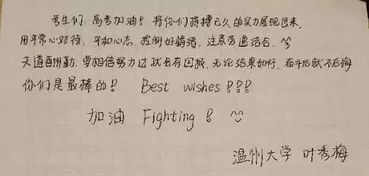 考生们，高考加油！将你们积攒已久的实力展现出来，
用平常心对待，平和心态，控制好情绪，注意劳逸结合。^^
天道酬勤，要相信努力过就会有回报，无论结果如何，在乎后就不后悔
你们是最棒的！ Best wishes！！！
加油 Fighting！ ^^
温州大学 叶秀梅